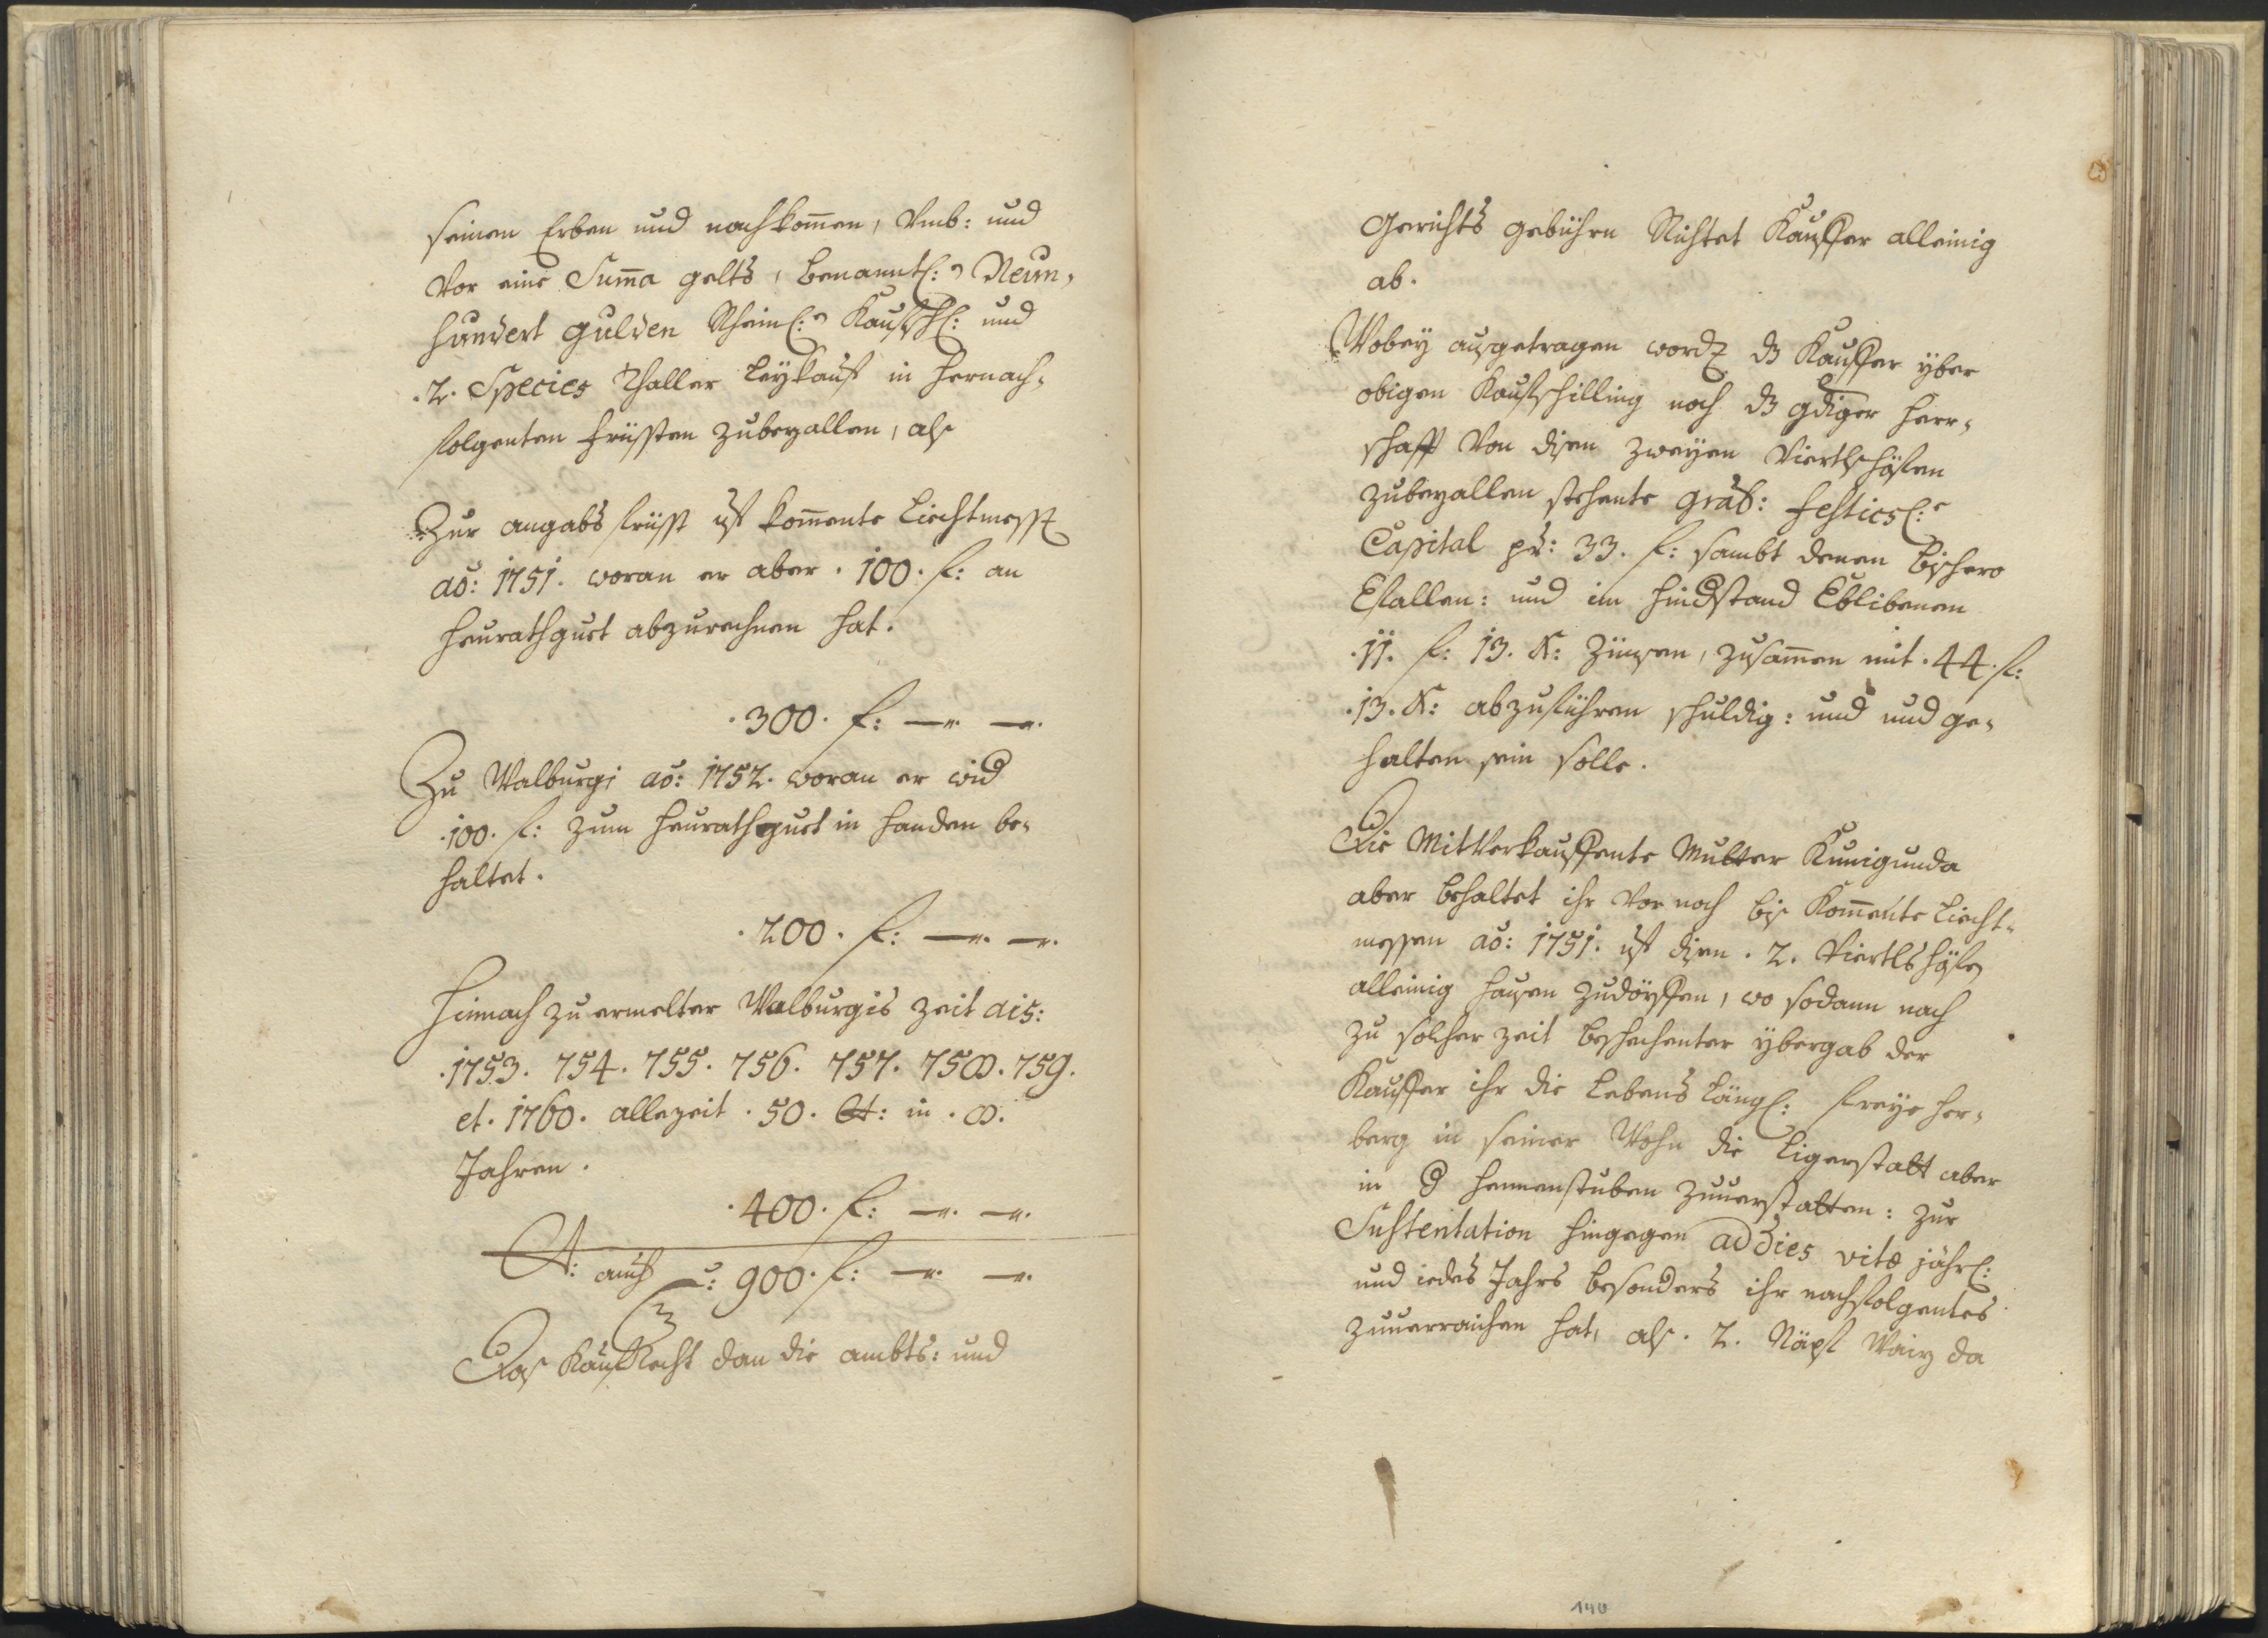 seinen Erben und nachkom̄en, Umb: und
vor eine Sum̄a gelts, benanntl: Neun,
hundert gulden Rheinl: Kaufschl: und
.2. Species Thaller Leykauf in hernach,
folgenten früssten zubezallen, als
Zur angabs früsst uf kom̄ente Liechtmesss
ao: 1751. woran er aber .100. f: an
Heurathguet abzurechnen hat.
.300. f: — —.
Zu Walburgi ao: 1752. woran er wid
.100. f: zum Heurathguet in handen be,
haltet.
.200. f: — —.
Hinnach zu ermelter Walburgis zeit ais:
.1753. 754. 755. 756. 757. 758. 759.
et. 1760. allezeit .50. f: in .8.
Jahren.
.400. f: — —.
auf : 900. f: — —.
Das Kaufrecht dan die ambts: und
Gerichts gebühren Richtet Kauffer alleinig
ab.
Wobey ausgetragen word dz Kauffer yber
obigen Kaufschilling noch dz gdiger Herr,
schafft von disen zweyen Viertlhöfen
zubezallen stehente gräf: Festicsl:
Capital pr: 33. f: sambt denen bishero
Efallen: und im hindstand Eblibenen
.11. f: 13. x: Zünsen, zusam̄en mit .44. f:
.13. x: abzuführen schuldig: und und ge,
halten sein solle.
Die Mitverkauffente Mutter Kunigunda
aber behaltet ihr vor noch bis kom̄ente Liecht,
messen ao: 1751. uf disen .2. Viertlshöfen
alleinig hausen zudörffen, wo sodann nach
zu solcher zeit beschechenter ybergab der
Kauffer ihr die Lebens längl: freye Her,
berg in seiner Wohn die Ligerstatt aber
in d Hennenstuben zuuerstatten: zur
Sustentation hingegen ad dies vitæ jährl:
und iedes Jahrs besonders ihr nachfolgentes
zuuerraichen hat, als .2. Näpf Waiz da
140